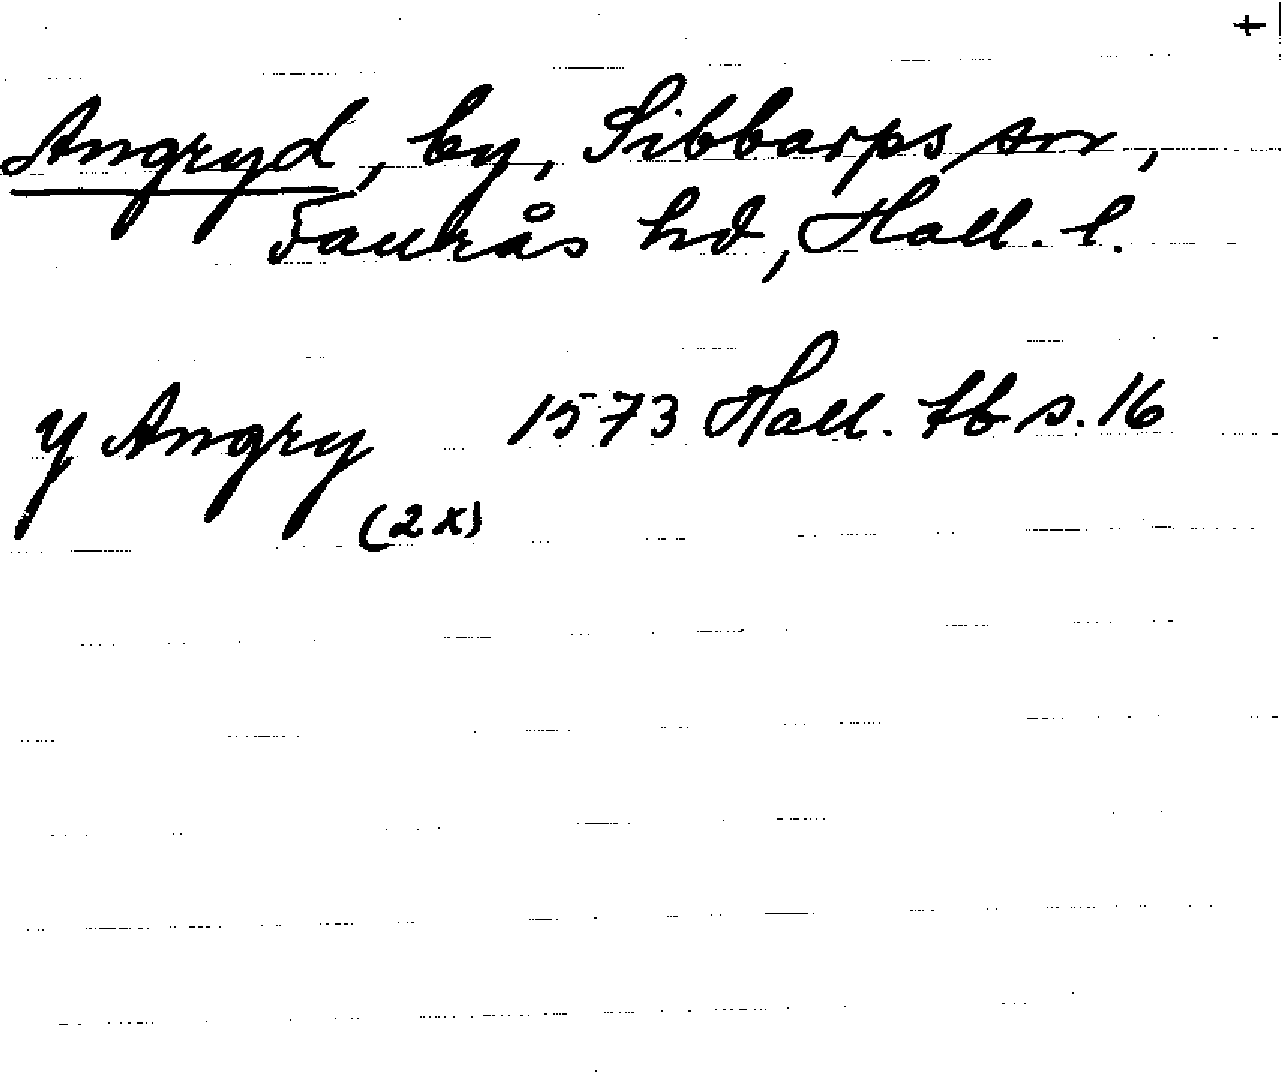 +
Angryd, by, Sibbarps sn,
Faurås hd, Hall. l.
y Angry 1573 Hall. tb s. 16
(2x)